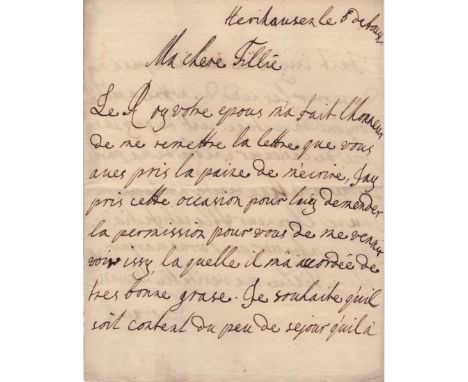 Herihausen le 6 de
Ma chere Fillie
Le Roy votre epous m'a fait l'honneur
de me remettre la lettre que vous
aues pris la paine de m'ecrire, J'ay
pris cette occasion pour luy demender
la permission pour vous de me venir
voir issy, la quelle il m'a acordée de
tres bonne grase. Je souhaite qu'il
soit content du peu de sejour qu'il à